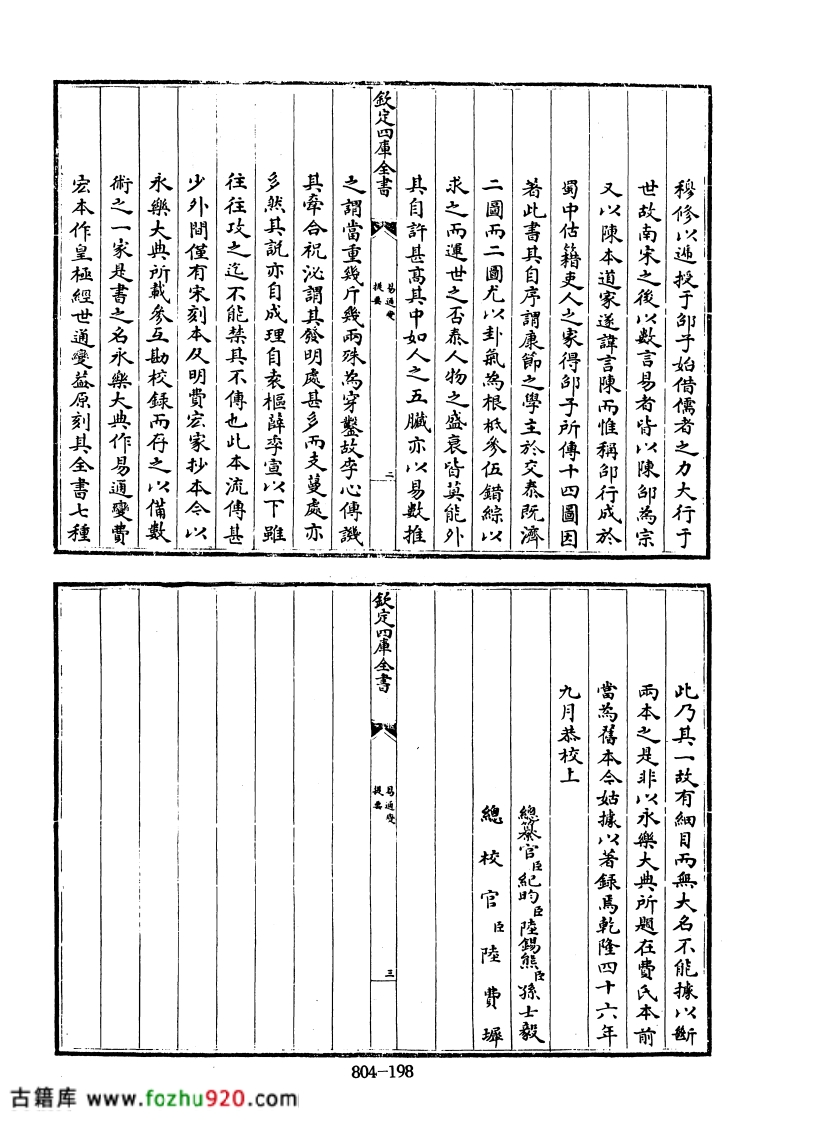 穆修以遞授于邵子始借儒者之力大行于
世故南宋之後以數言易者皆以陳邵為宗
又以陳本道家遂諱言陳而惟稱邵行成於
蜀中估籍吏人之家得邵子所傳十四圖因
著此書其自序謂康節之學主於交泰旣濟
二圖而二圖尤以卦氣為根柢參伍錯綜以
求之而運世之否泰人物之盛衰皆莫能外
其自許甚髙其中如人之五臟亦以易數推
欽定四庫全書
易通變
提要
二
之謂當重幾斤幾兩殊為穿鑿故李心傳譏
其牽合祝泌謂其發明處甚多而支蔓處亦
多然其説亦自成理自袁樞薛季宣以下雖
往往攻之迄不能禁其不傳也此本流傳甚
少外間僅有宋刻本及明費宏家抄本今以
永樂大典所載參互勘校録而存之以備數
術之一家是書之名永樂大典作易通變費
宏本作皇極經世通變葢原刻其全書七種
此乃其一故有細目而無大名不能據以斷
兩本之是非以永樂大典所題在費氏本前
當為舊本今姑據以著録焉乾隆四十六年
九月恭校上
總纂官臣紀昀臣陸錫熊臣孫士毅
總校官臣陸費墀
欽定四庫全書
易通變
提要
三
804-198
古籍库 www.fozhu920.com